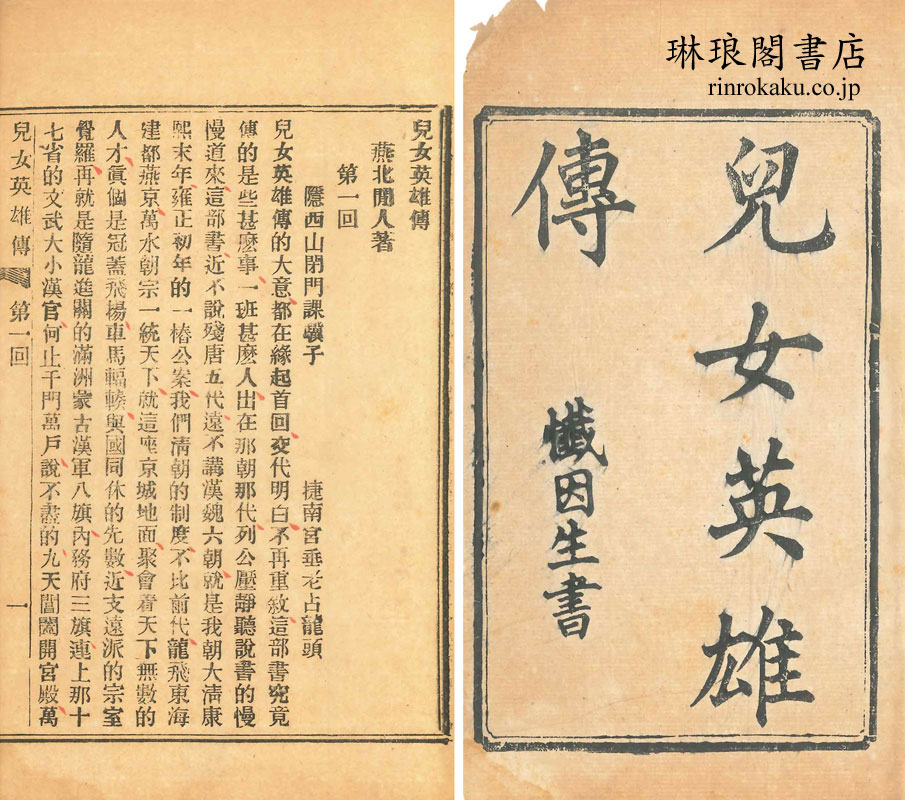 琳琅閣書店
rinrokaku.co.jp
兒女英雄
傳
懺因生書
兒女英雄傳
燕北閒人著
第一回
隱西山閉門課驥子　捷南宮垂老占龍頭
兒女英雄傳的大意都在緣起首回交代明白不再重敘這部書究竟
傳的是些甚麽事一班甚麽人出在那朝那代列公壓靜聽說書的慢
慢道來這部書近不說殘唐五代遠不講漢魏六朝就是我朝大清康
熙末年雍正初年的一樁公案我們清朝的制度不比前代龍飛東海
建都燕京萬水朝宗一統天下就這座京城地面聚會着天下無數的
人才眞個是冠蓋飛揚車馬輻輳與國同休的先數近支遠派的宗室
覺羅再就是隨龍進關的滿洲蒙古漢軍八旗內務府三旗連上那十
七省的文武大小漢官何止千門萬戶說不盡的九天閶闔開宮殿萬
兒女英雄傳　第一回　一